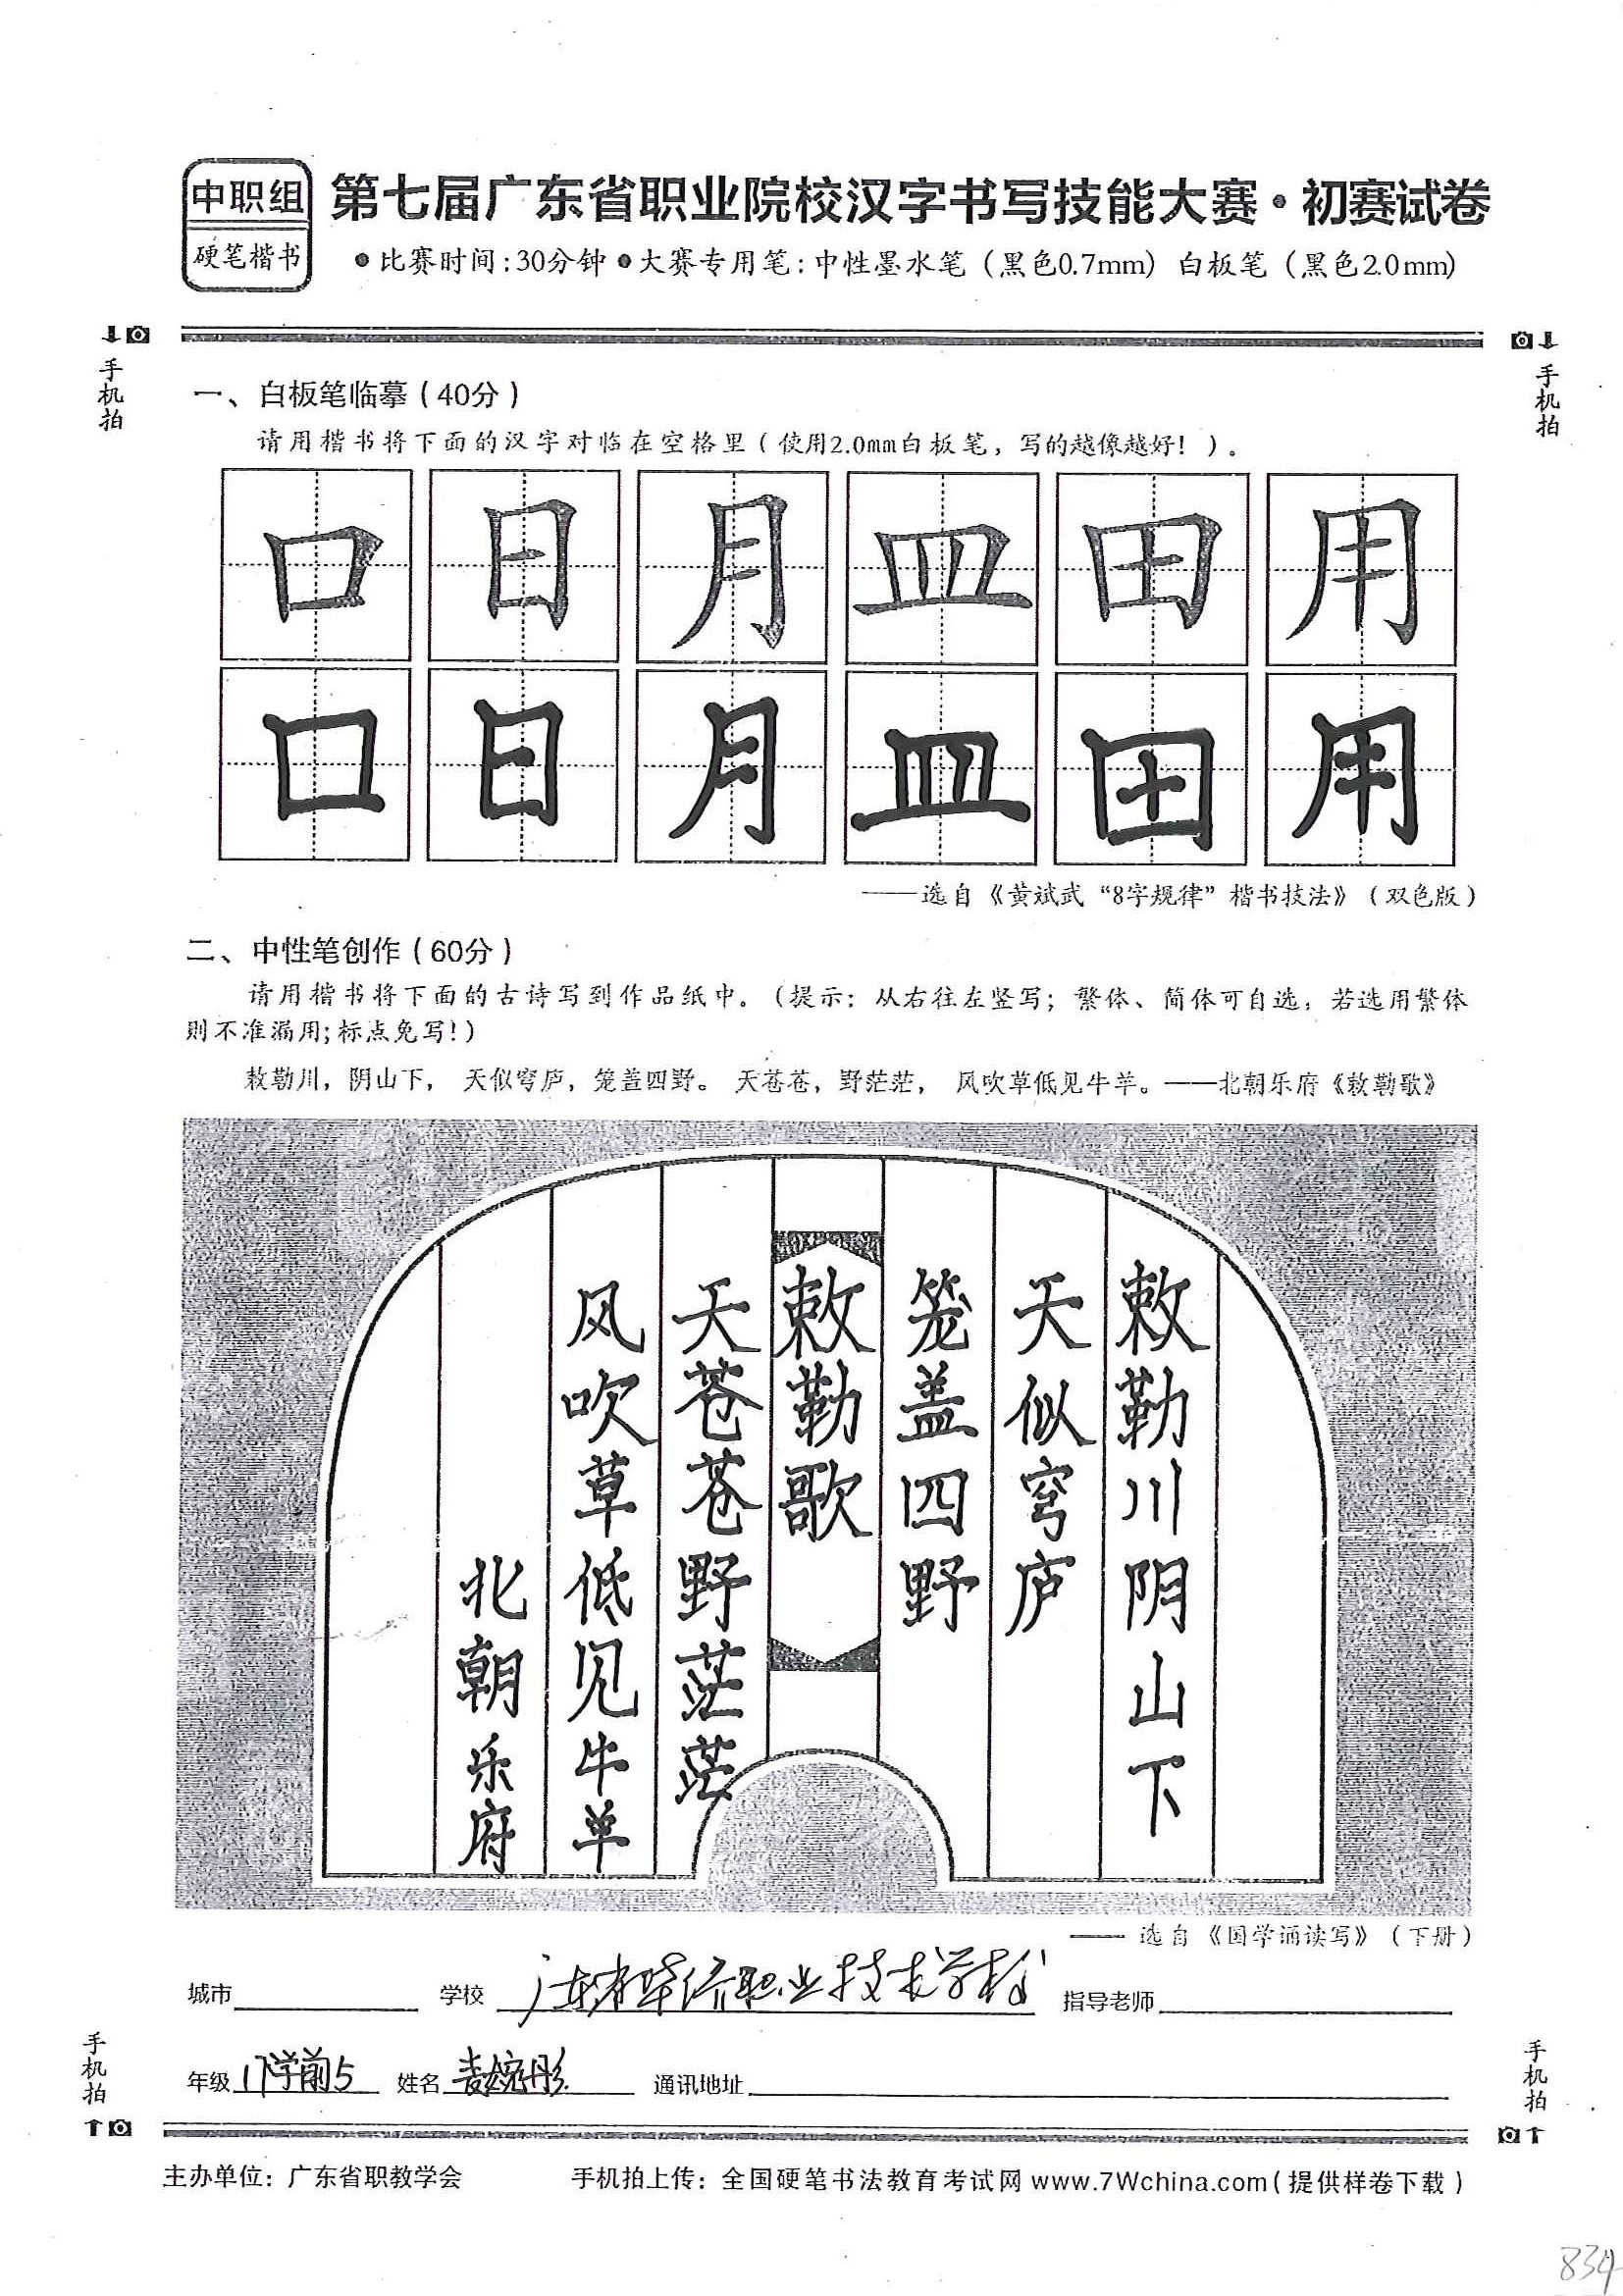 中职组
硬笔楷书
第七届广东省职业院校汉字书写技能大赛·初赛试卷
●比赛时间:30分钟●大赛专用笔:中性墨水笔（黑色0.7mm）白板笔（黑色2.0mm）
手机拍
手机拍
一、白板笔临摹(40分)
请用楷书将下面的汉字对临在空格里(使用2.0mm白板笔，写的越像越好!)。
口 日 月 皿 田 用
口 日 月 皿 田 用
——选自《黄斌武“8字规律”楷书技法》(双色版)
二、中性笔创作(60分)
请用楷书将下面的古诗写到作品纸中。(提示：从右往左竖写；繁体、简体可自选，若选用繁体
则不准漏用;标点免写!)
敕勒川，阴山下， 天似穹庐，笼盖四野。 天苍苍，野茫茫， 风吹草低见牛羊。——北朝乐府《敕勒歌》
敕勒川阴山下
天似穹庐
笼盖四野
敕勒歌
天苍苍野茫茫
风吹草低见牛羊
北朝乐府
—— 选自《国学诵读写》(下册)
城市 学校 广东省华侨职业技术学校 指导老师
年级 17学前5 姓名 麦婉彤 通讯地址
手机拍
手机拍
主办单位：广东省职教学会 手机拍上传：全国硬笔书法教育考试网 www.7Wchina.com(提供样卷下载)
834